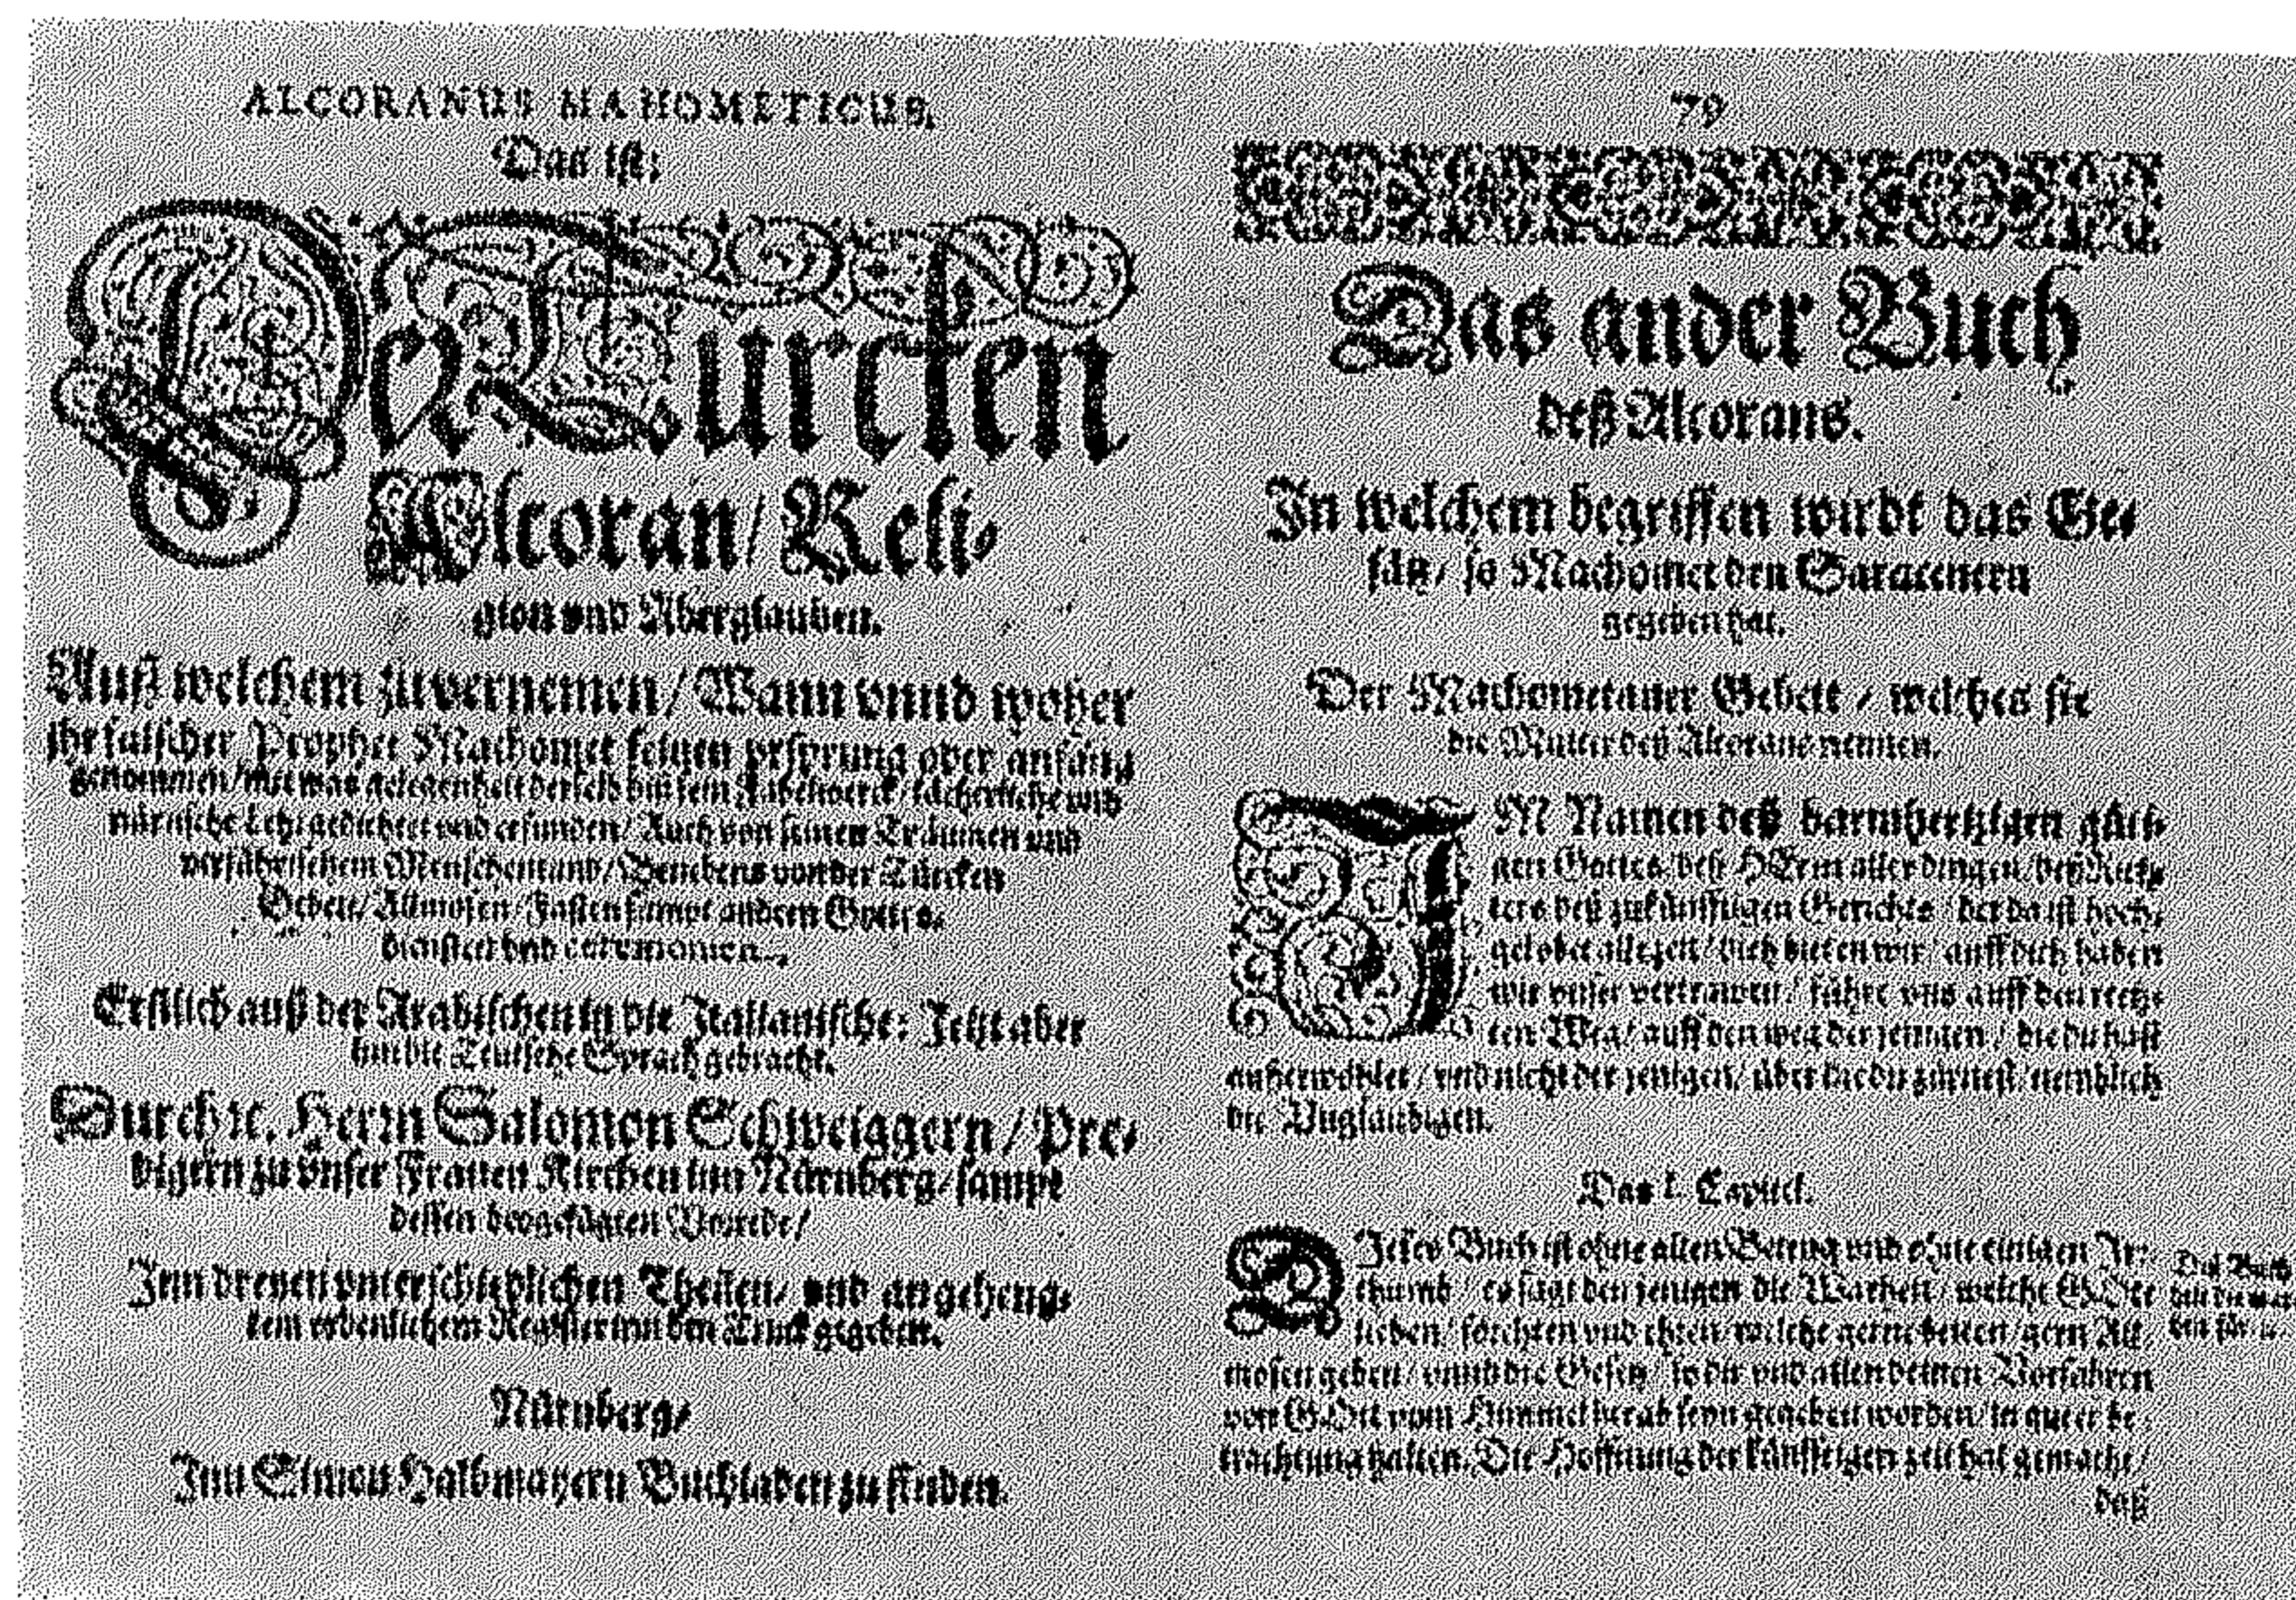 ALCORANUS MAHOMETICUS,
Das ist:
Der Türcken
Alcoran/ Reli-
gion vnd Aberglauben.
Auß welchem zu vernemen/ Wann vnnd woher
ihr falscher Prophet Machomet seinen vrsprung oder anfang
genommen/ mit was gelegenheit derselb diß sein Fabelwerck/ lächerliche vnd
närrische Lehr gedichtet vnd erfunden/ Auch von seinen Träumen vnd
verführischem Menschentand/ Benebens von der Türcken
Gebett/ Allmosen/ Fasten sampt andern Gottes-
diensten vnd ceremonien.
Erstlich auß der Arabischen in die Italianische: Jetzt aber
inn die Teutsche Sprach gebracht.
Durch rc. Herrn Salomon Schweiggern/ Pre-
digern zu vnser Frauen Kirchen inn Nürnberg/ sampt
dessen beygefügten Vorrede/
Inn dreyen vnterschiedlichen Theilen/ vnd angeheng-
tem ordenlichem Register inn den Truck gegeben.
Nürnberg/
Inn Simon Halbmayern Buchladen zu finden.
79
Das ander Buch
deß Alcorans.
In welchem begriffen wirdt das Ge-
sätz/ so Machomet den Saracenern
gegeben hat.
Der Machometaner Gebett/ welches sie
die Mutter deß Alcorans nennen.
IM Namen deß barmhertzigen güti-
gen Gottes/ deß HErrn aller dingen/ deß Rich-
ters deß zukünfftigen Gerichts/ der da ist hoch-
gelobet allezeit/ dich bitten wir/ auff dich haben
wir vnser vertrawen/ führe vns auff den rech-
ten Weg/ auff den weg der jenigen/ die du hast
außerwöhlet/ vnd nicht der jenigen/ über die du zürnest/ nemblich
die Vnglaubigen.
Das I. Capitel.
DIeses Buch ist ohne allen Betrug vnd ohne einigen Jr-
thumb/ es sagt den jenigen die Warheit/ welche GOtt
lieben/ förchten vnd ehren/ welche gerne betten/ gern All-
mosen geben/ vnnd die Gesetz/ so dir vnd allen deinen Vorfahren
von GOtt vom Himmel herab seyn gegeben worden/ in guter be-
trachtung halten. Die Hoffnung der künfftigen zeit hat gemacht/
daß
Das Buch